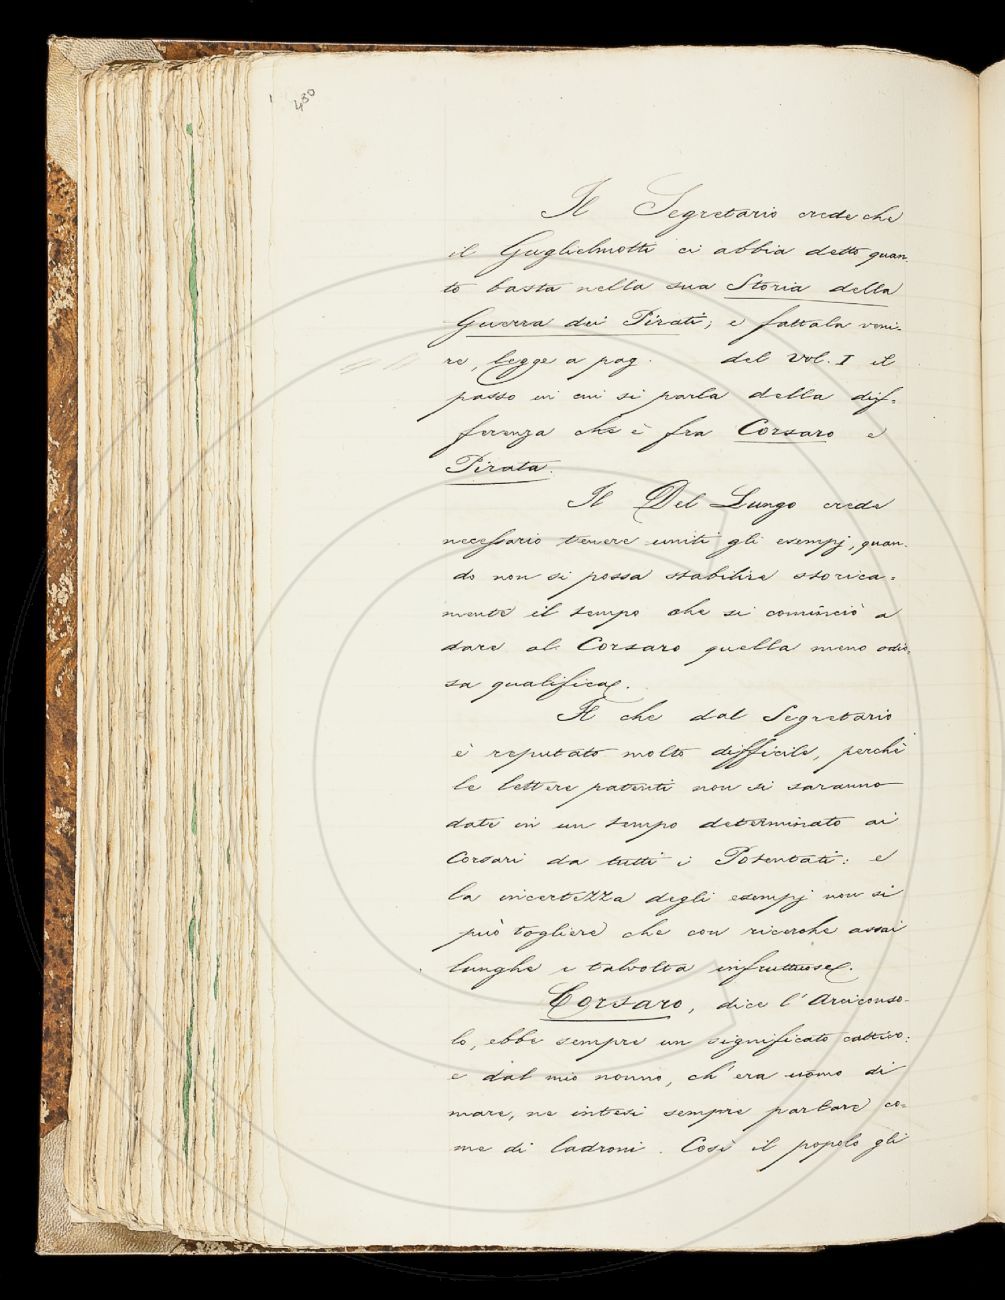 430
Il Segretario crede che
il Guglielmotti ci abbia detto quan-
to basta nella sua Storia della
Guerra dei Pirati; e fattala veni-
re, legge a pag. del Vol. I il
passo in cui si parla della dif-
ferenza che è fra Corsaro e
Pirata.
Il Del Lungo crede
necessario tenere uniti gli esempj, quan-
do non si possa stabilire storica-
mente il tempo che si cominciò a
dare al Corsaro quella meno odio-
sa qualifica.
Il che dal Segretario
è reputato molto difficile, perchè
le lettere patenti non si saranno
date in un tempo determinato ai
Corsari da tutti i Potentati: e
la incertezza degli esempj non si
può togliere che con ricerche assai
lunghe e talvolta infruttuose.
Corsaro, dice l'Arciconso-
lo, ebbe sempre un significato cattivo:
e dal mio nonno, ch'era uomo di
mare, ne intesi sempre parlare co-
me di ladroni. Così il popolo gli